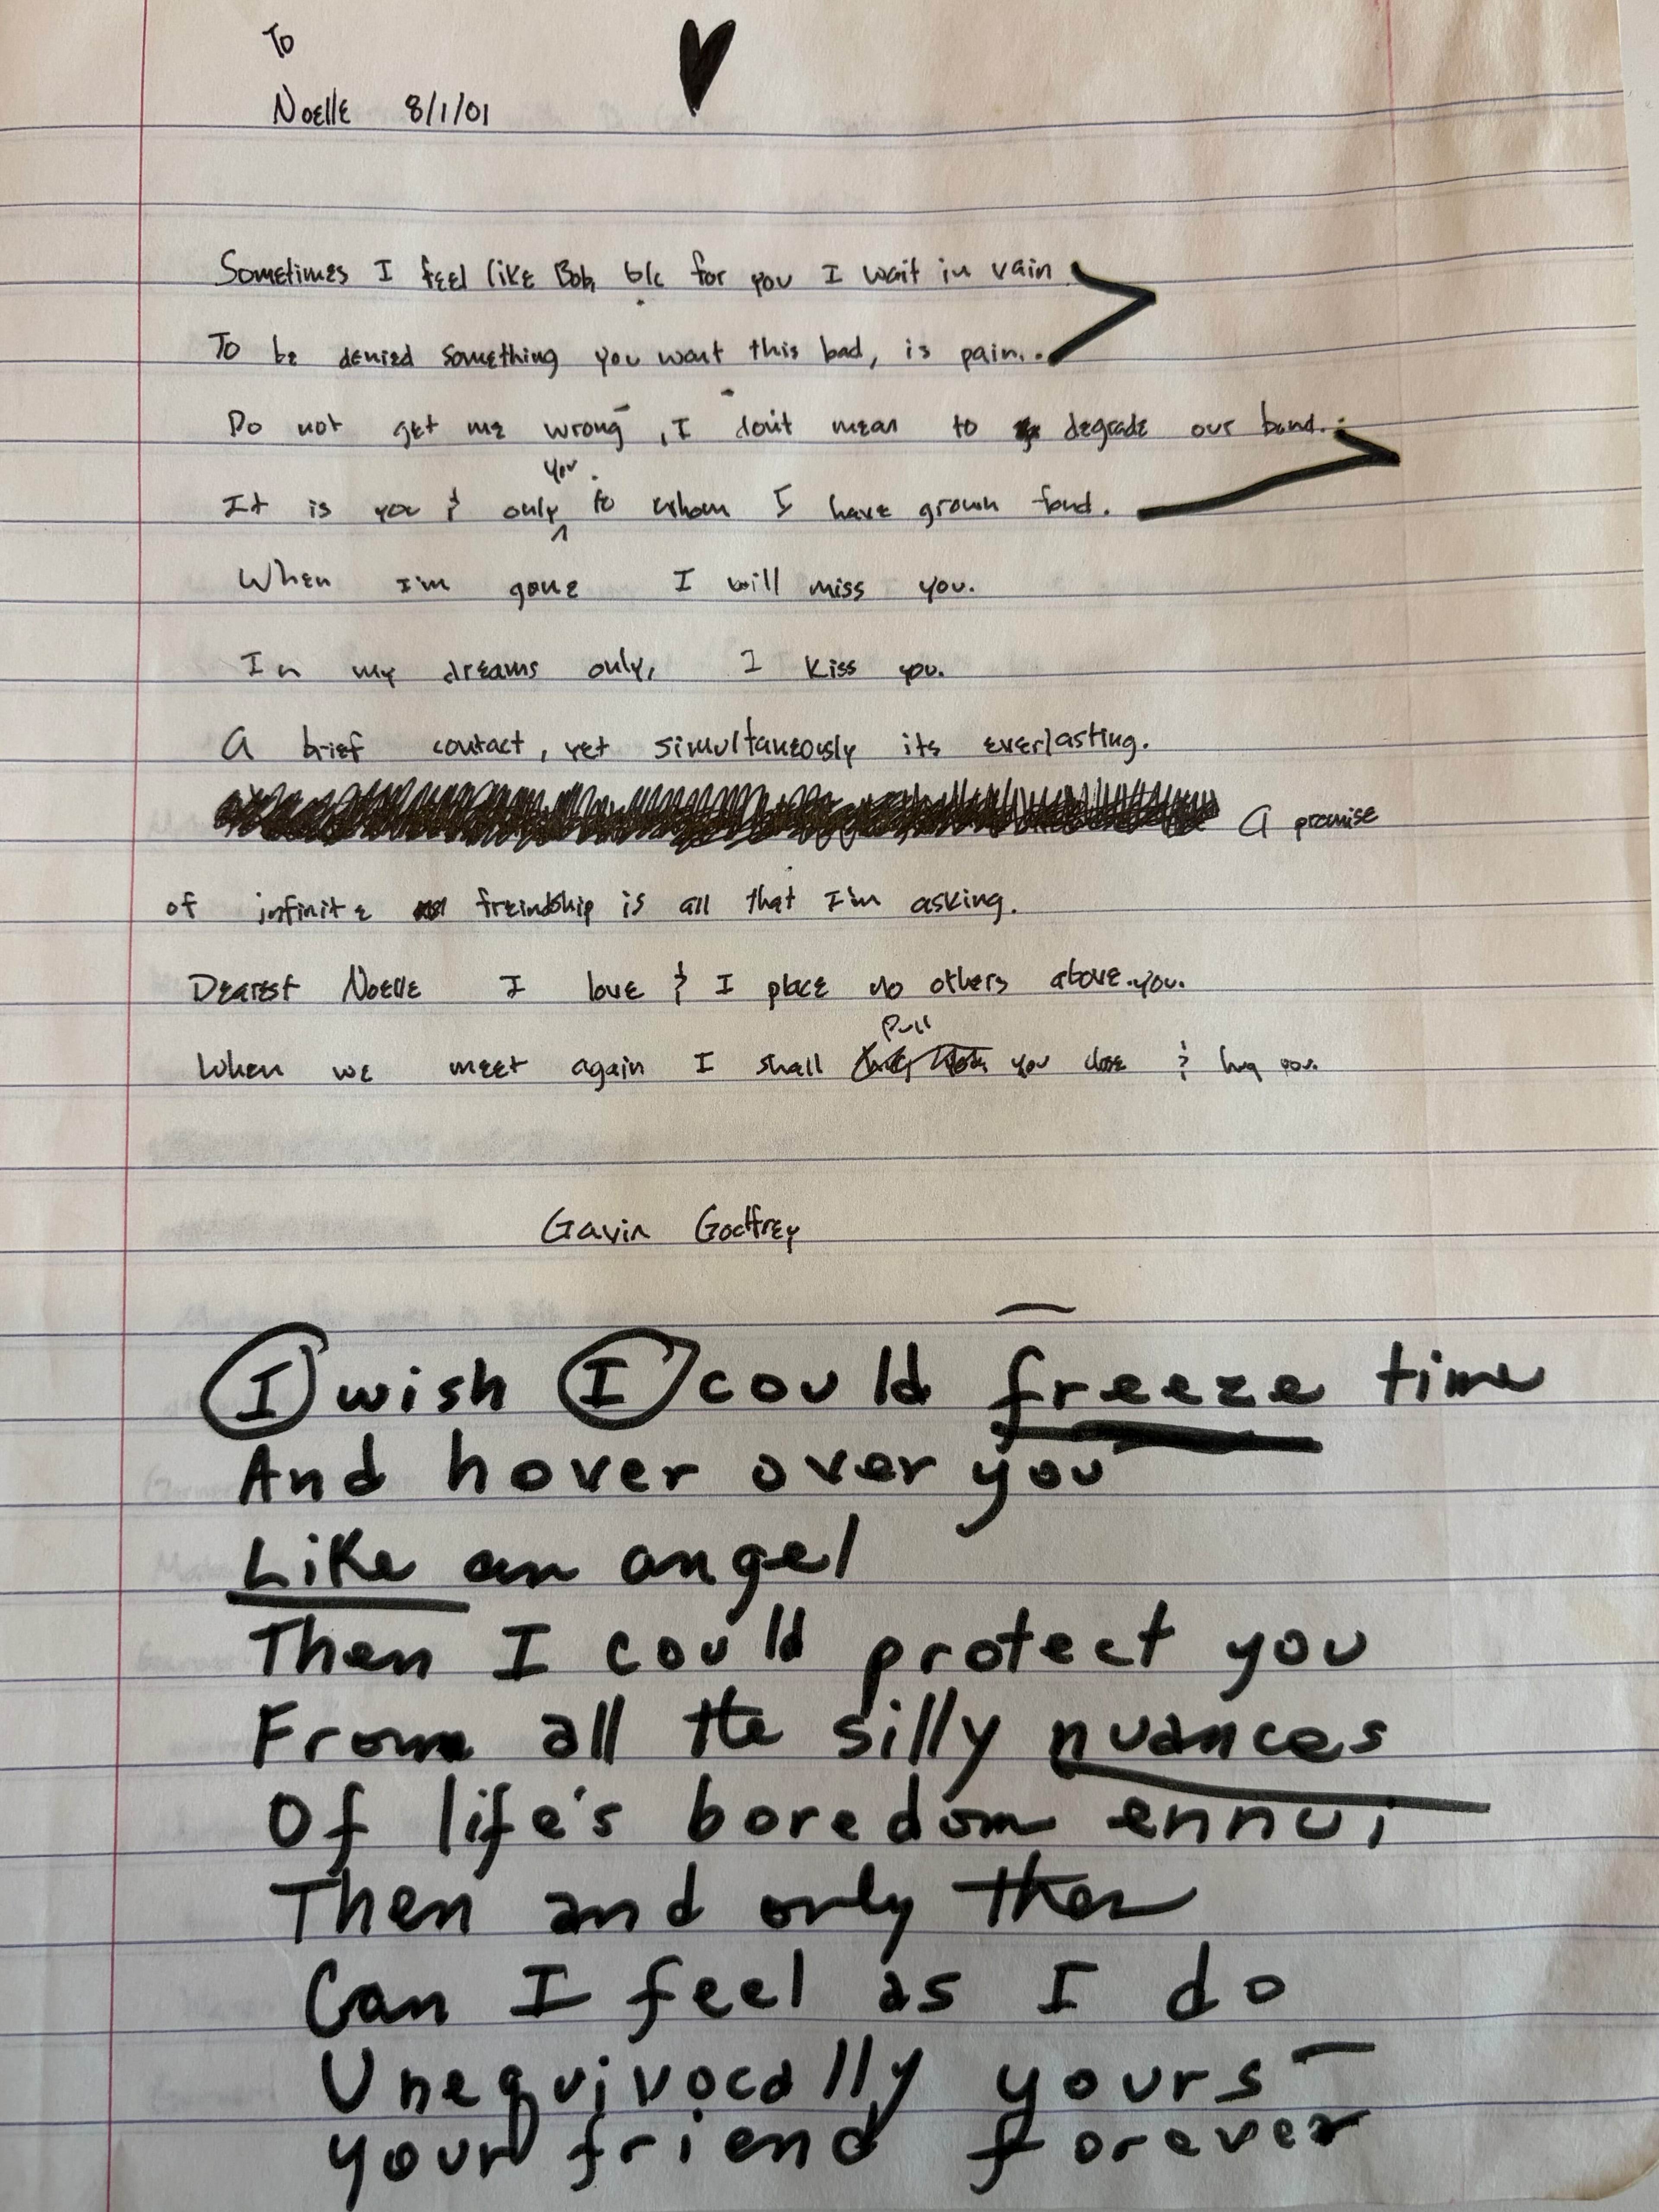 To
Noelle 8/1/01
Sometimes I feel like Bob, b/c for you I wait in vain
To be denied something you want this bad, is pain...
Do not get me wrong, I don't mean to degrade our bond.
you
It is you & only to whom I have grown fond.
When I'm gone I will miss you.
In my dreams only, I kiss you.
A brief contact, yet simultaneously its everlasting.
A promise
of infinite freindship is all that I'm asking.
Dearest Noelle I love & I place no others above you.
Pull
When we meet again I shall you close & hug you.
Gavin Godfrey
I wish I could freeze time
And hover over you
Like an angel
Then I could protect you
From all the silly nuances
Of life's boredom ennui
Then and only then
Can I feel as I do
Unequivocally yours
your friend forever